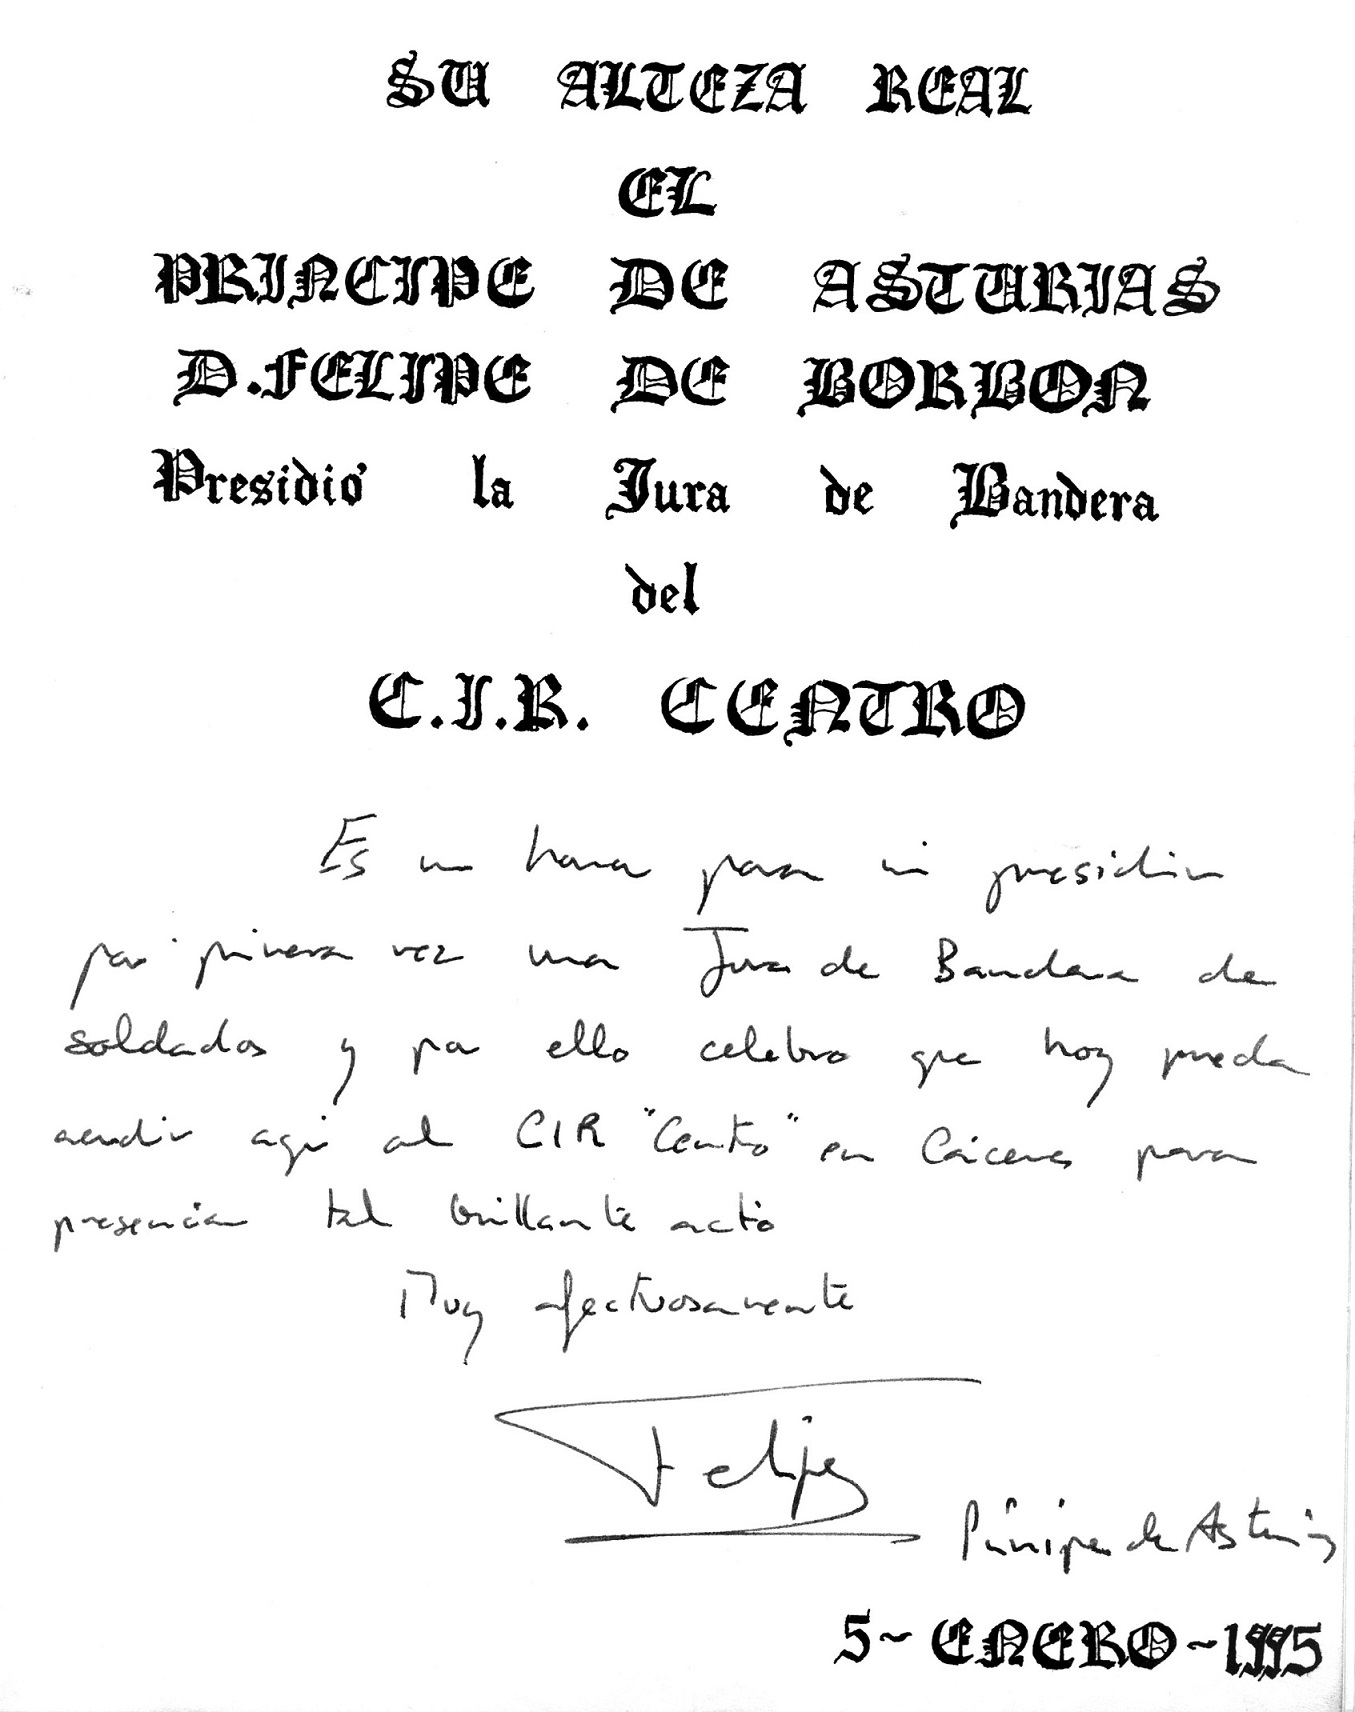 SU ALTEZA REAL
EL
PRINCIPE DE ASTURIAS
D. FELIPE DE BORBON
Presidió la Jura de Bandera
del
C.I.R. CENTRO
Es un honor para mi presidir
por primera vez una Jura de Bandera de
soldados y por ello celebro que hoy pueda
acudir aqui al CIR "Centro" en Cáceres para
presenciar tal brillante acto
Muy afectuosamente
Felipe
Príncipe de Asturias
5~ENERO~1995